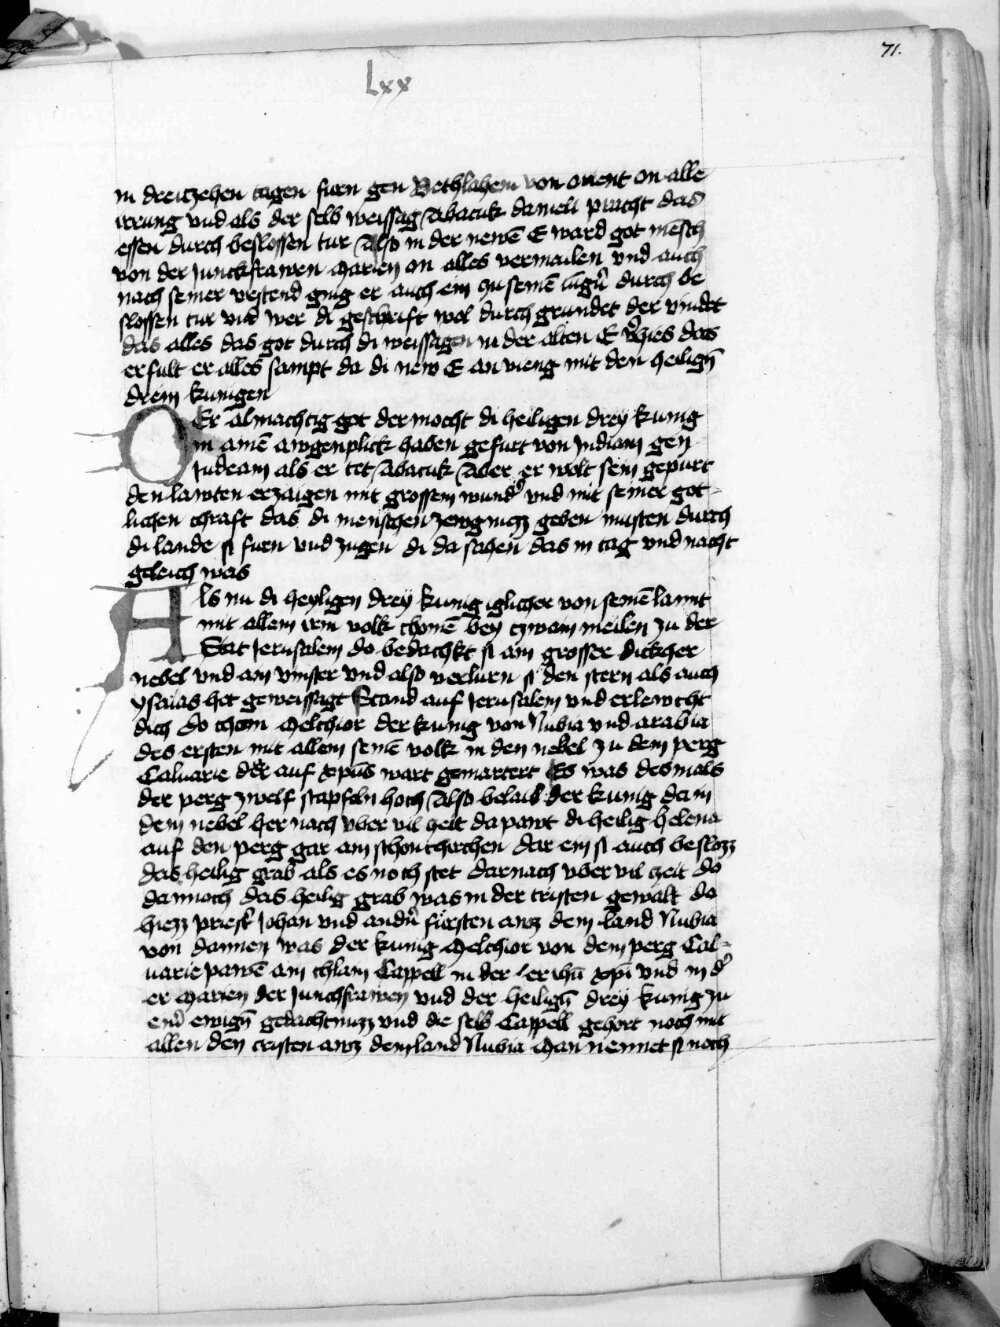 71.
Lxx
in dreitzehen tagen furn gen Bethlahem von orient on alle
irrung vnd als der selb weissag Abacuk danieli pracht das
essen durch beslossen tur Also in der newē E ward got mēsch
von der Junckfrawen Marien on alles vermailen vnd auch
nach seiner vrstend ging er auch ein zu seinē iūgn̄ durch be
slossen tur vnd wer di geschrift wol durch grundet der vindet
das alles das got durch di weissagen in der alten E v̓hies das
erfult er alles sampt da di new E an vieng mit den heilign̄
drein kunigen
Er almachtig got der mocht di heiligen drey kunig
in ainē awgenplick haben gefurt von Indiam gen
Judeam als er tet Abacuk Aber er wolt sein gepurt
den lawten erzaigen mit grossem wund̓ vnd mit seiner got-
lichen chraft das di menschen zewgnuzz geben musten durch
di lande si furn vnd zugen di da sahen das in tag vnd nacht
geleich was
Als nu di heyligen drey kunig iglicher von seinē lannt
mit allem irm volk chomē bey czwain meilen zu der
Stat Jerusalem do bedachkt si ain grosser dickher
nebel vnd ain vinster vnd also verlurn si den stern als auch
ysaias het geweissagt Stand auf Jerusalem vnd erlewcht
dich do chom Melchior der kunig von Nubia vnd arabia
des ersten mit allem seinē volk in den nebel zu dem perg
Caluarie der auf xp̄us wart gemartert Es was desmals
der perg zwelf stapfeln hoch Also belaib der kunig da in
dem nebel her nach vber vil zeit da pawt di heilig helena
auf den perg gar ain schon chirchen dar ein si auch beslozz
das heilig grab als es noch stet darnach vber vil zeit do
dannoch das heilig grab was in der cristen gewalt do
hiezz priest̓ Johan vnd andn̄ fursten awz dem land Nubia
von dannen was der kunig Melchior von dem perg Cal-
uarie pawē ain chlain Cappell in der er ihū xp̄i vnd in d̓
er Marien der Junchfrawen vnd der heilign̄ drey kunig zu
ein̓ ewign̄ gedachtnuzz vnd die selb Cappell gehort noch mit
allen den cristen awz dem land Nubia Man nennet si noch